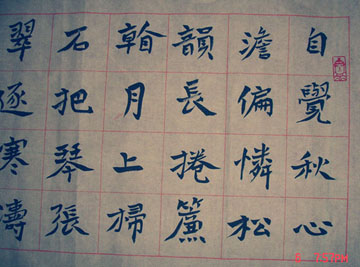 自覺秋心
澹偏憐松
韻長捲簾
月上掃
石把琴張
翠逐寒濤